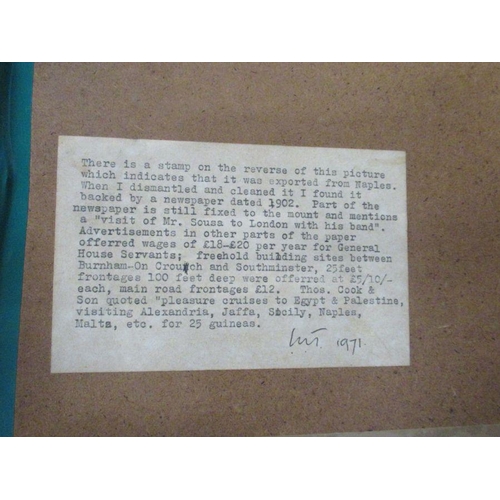 There is a stamp on the reverse of this picture
which indicates that it was exported from Naples.
When I dismantled and cleaned it I found it
backed by a newspaper dated 1902. Part of the
newspaper is still fixed to the mount and mentions
a "visit of Mr. Sousa to London with his band".
Advertisements in other parts of the paper
offerred wages of £18-£20 per year for General
House Servants; freehold building sites between
Burnham-On Crouch and Southminster, 25feet
frontages 100 feet deep were offerred at £5/10/-
each, main road frontages £12. Thos. Cook &
Son quoted "pleasure cruises to Egypt & Palestine,
visiting Alexandria, Jaffa, Sicily, Naples,
Malta, etc. for 25 guineas.
1971.